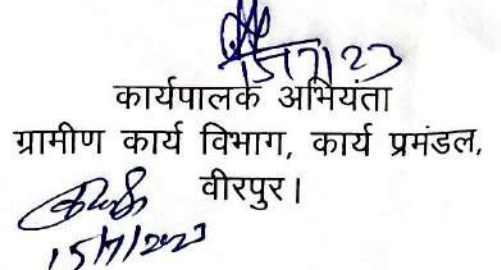 15/7/23
कार्यपालक अभियंता
ग्रामीण कार्य विभाग, कार्य प्रमंडल,
वीरपुर।
15/7/2023